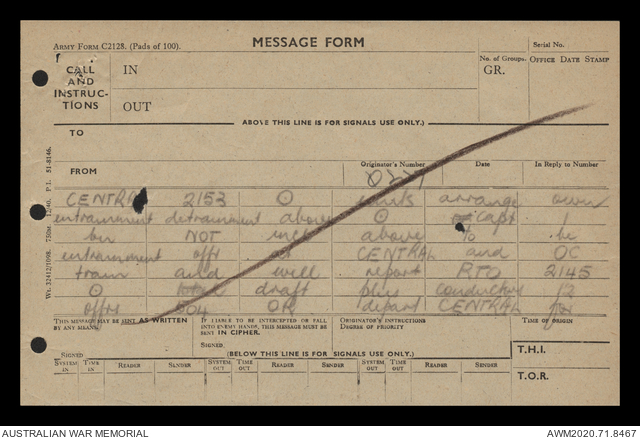 ARMY FORM C2128. (Pads of 100).
MESSAGE FORM
Serial No.
CALL AND INSTRUC-TIONS
IN
No. of Groups. GR.
OFFICE DATE STAMP
OUT
ABOVE THIS LINE IS FOR SIGNALS USE ONLY.)
TO
FROM
Originator's Number
Date
In Reply to Number
CENTRAL 2153 ⊙ units arrange own
entrainment detrainment above ⊙ Capt 1
bn NOT incl above to be
entrainment offr at CENTRAL and OC
train and will report RTO 2145
⊙ total draft plus conducting 12
offrs 504 OR depart CENTRAL for
THIS MESSAGE MAY BE SENT AS WRITTEN BY ANY MEANS.
IF LIABLE TO BE INTERCEPTED OR FALL INTO ENEMY HANDS, THIS MESSAGE MUST BE SENT IN CIPHER.
ORIGINATOR'S INSTRUCTIONS DEGREE OF PRIORITY
TIME OF ORIGIN
SIGNED
SIGNED
(BELOW THIS LINE IS FOR SIGNALS USE ONLY.
T.H.I.
SYSTEM IN
TIME IN
READER
SENDER
SYSTEM OUT
TIME OUT
READER
SENDER
SYSTEM OUT
TIME OUT
READER
SENDER
T.O.R.
AUSTRALIAN WAR MEMORIAL
AWM2020.71.8467